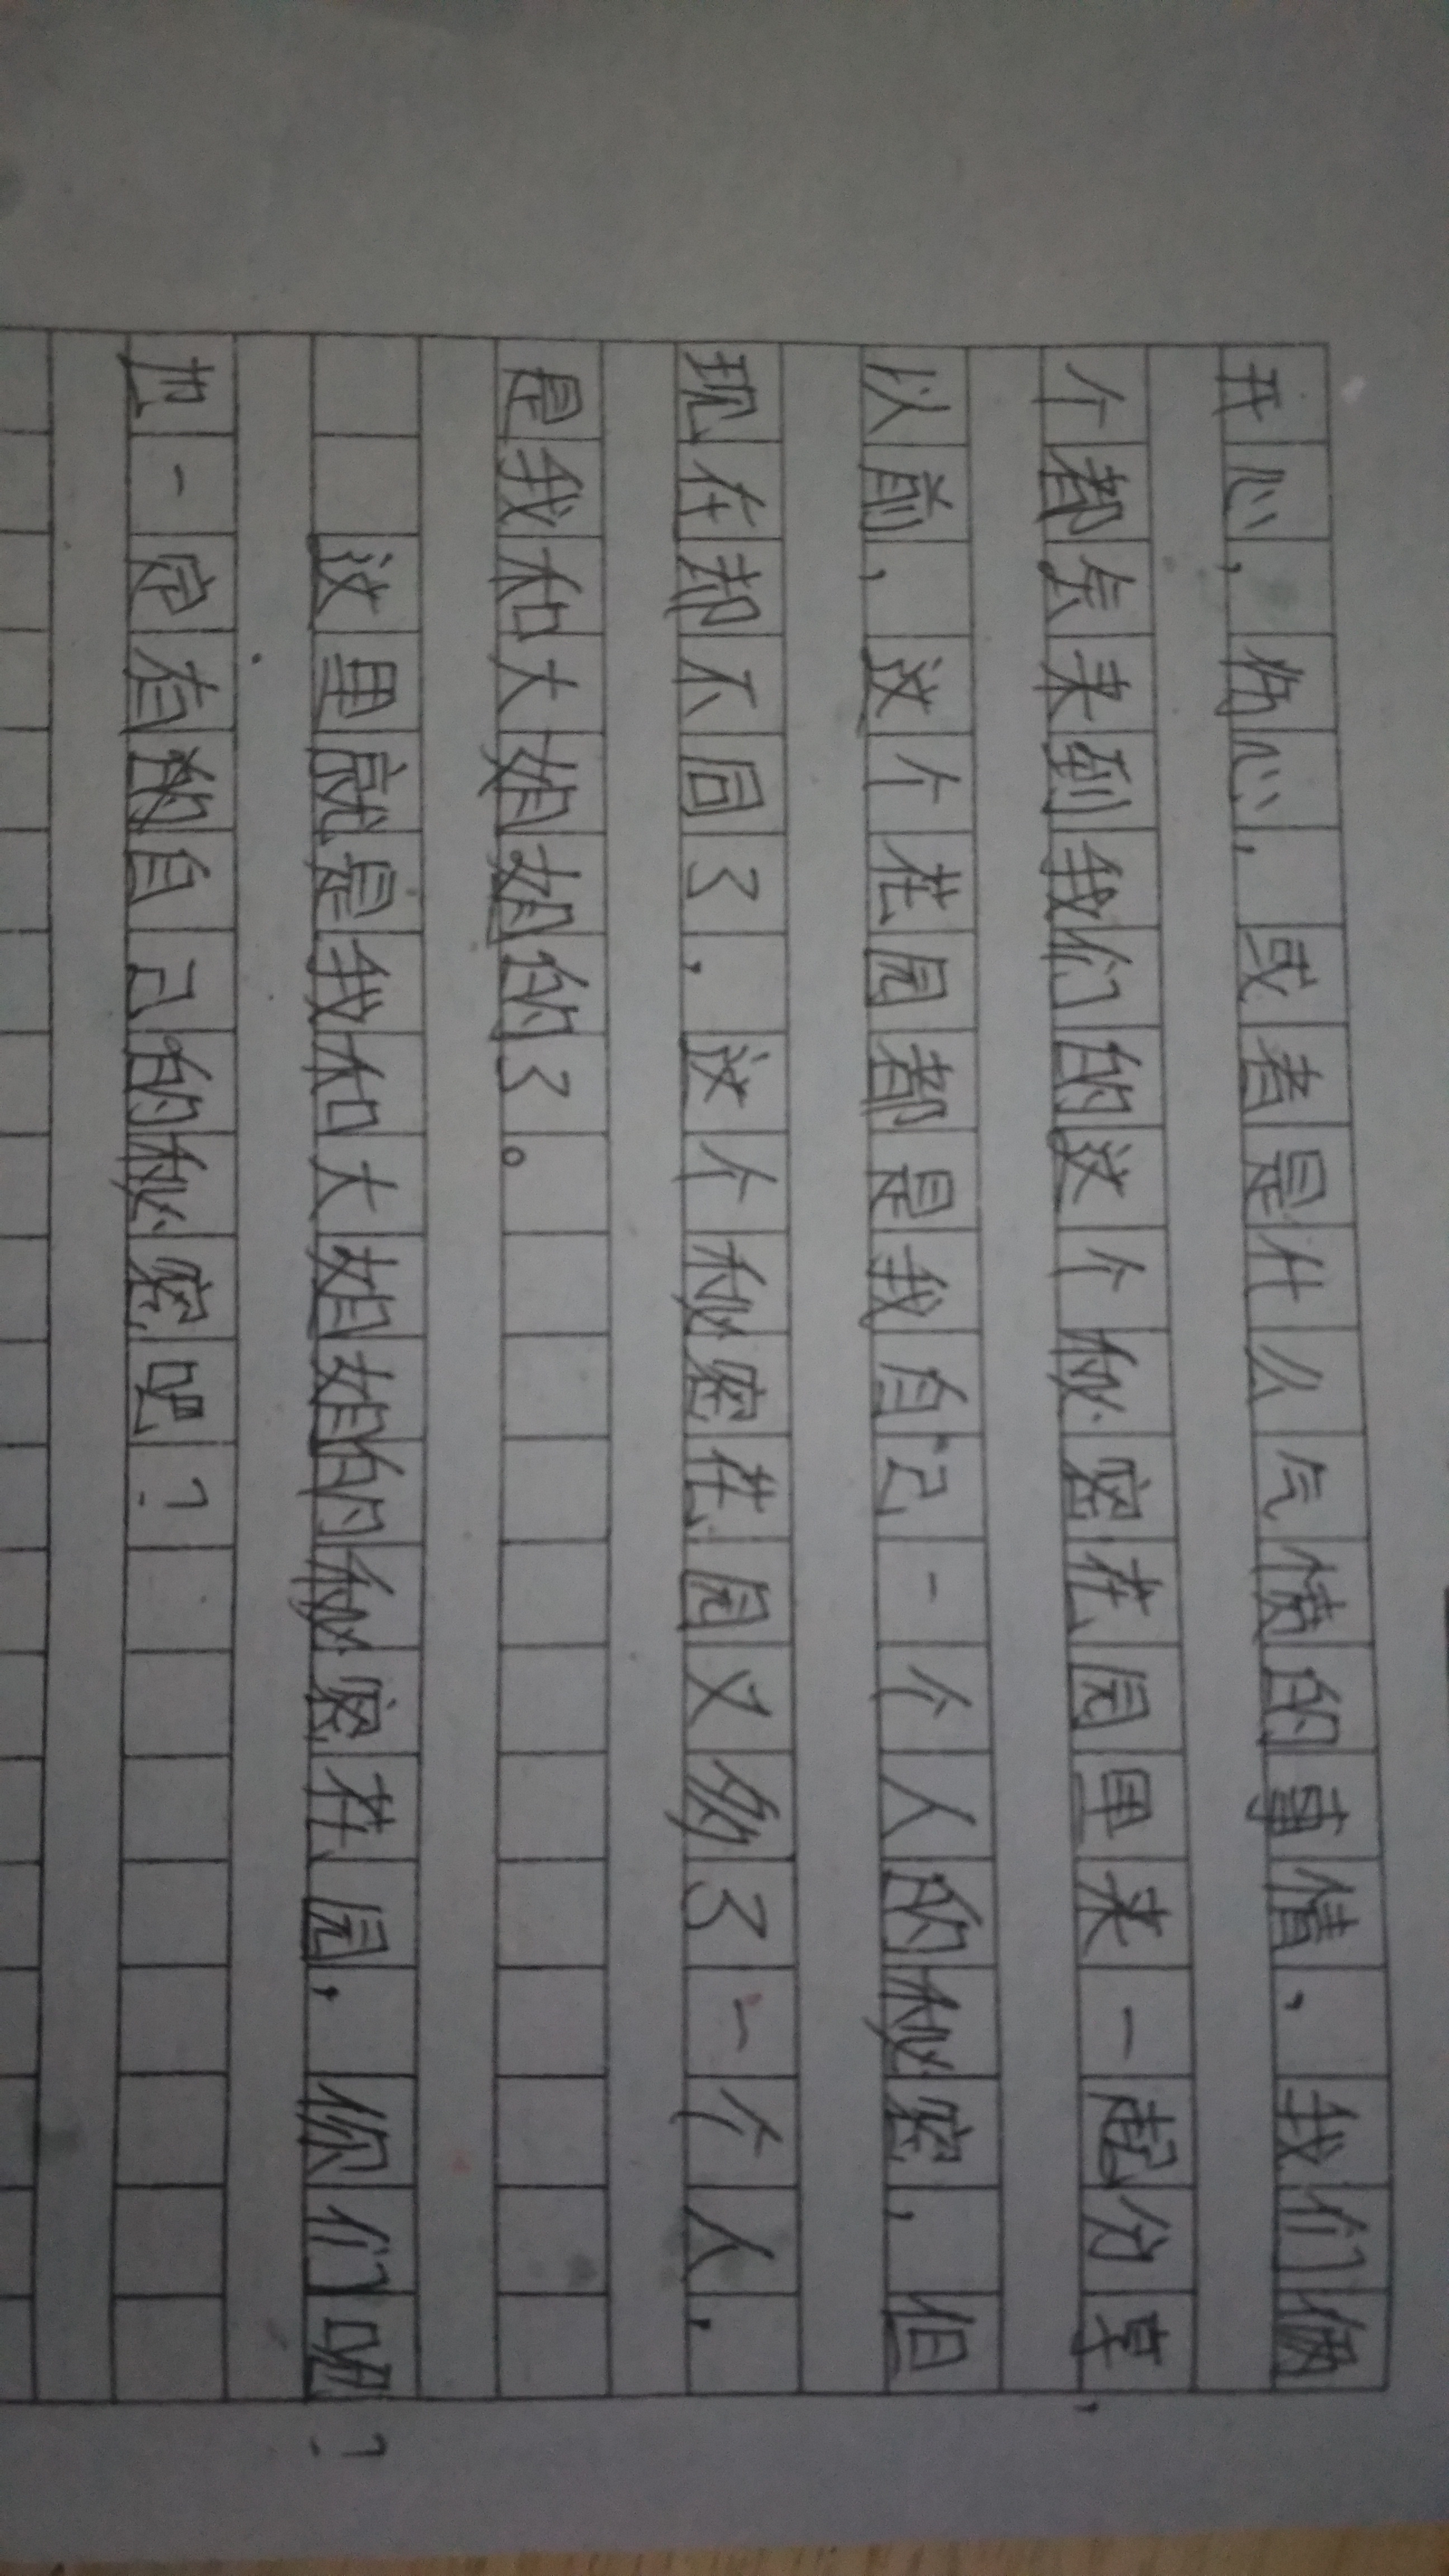 开心，伤心，或者是什么气愤的事情，我们俩
个都会来到我们的这个秘密花园里来一起分享，
以前，这个花园都是我自己一个人的秘密，但
现在却不同了，这个秘密花园又多了一个人，
是我和大姐姐的了。
这里就是我和大姐姐的秘密花园，你们呢？
也一定有独自己的秘密吧？